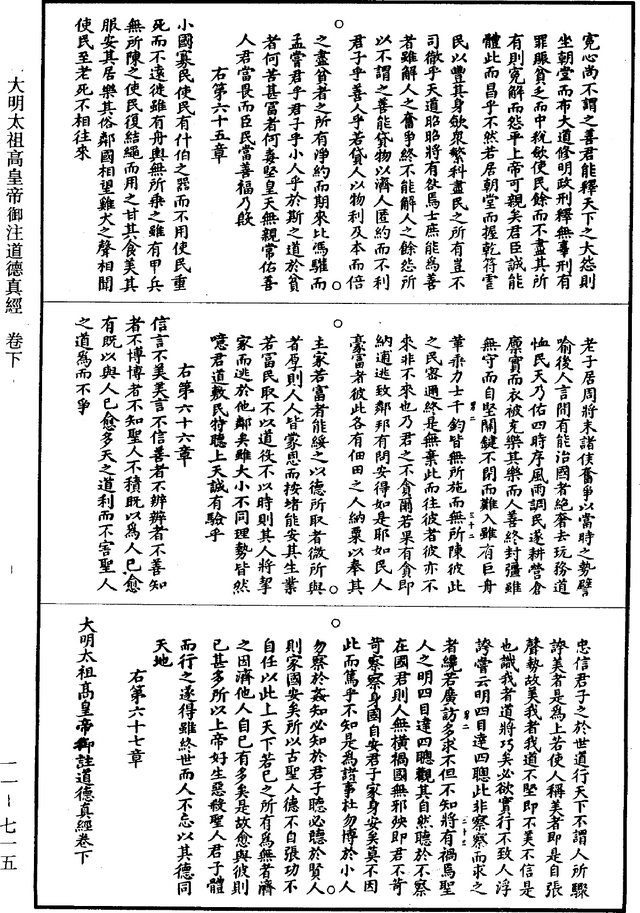 寬心尚不謂之善君能釋天下之大怨則
坐朝堂而布大道修明政刑釋無辜刑有
罪賑貧乏而中稅斂使民餘而不盡其所
有則寬解而怨平上帝可親矣君臣誠能
體此而昌乎不然若居朝堂而握乾符雲
民以豐其身欲衆繁科盡民之所有豈不
司徹乎天道昭昭將有欲焉士庶能為善
者雖解人之奮爭終不能解人之餘怨所
以不謂之善能貸物以濟人匿約而不利
君子乎善人乎若貸人以物利及本而倍
之盡貧者之所有淨約而期來比馮驩而
孟嘗君乎君子乎小人乎於斯之道於貧
者何苦甚富者何毒堅皇天無親常佑善
人君當畏而臣民當善福乃殷
右第六十五章
小國寡民使民有什伯之器而不用使民重
死而不遠徙雖有舟輿無所乘之雖有甲兵
無所陳之使民復結繩而用之甘其食美其
服安其居樂其俗鄰國相望雞犬之聲相聞
使民至老死不相往來
老子居周將末諸侯奮爭以當時之勢譬
喻後人言閒有能治國者絕奢去玩務道
恤民天乃佑四時序風雨調民遂耕營倉
廩實而衣被充樂其樂而人善終封疆雖
無守而自堅關鍵不閉而難入雖有巨舟
華乘力士千鈞皆無所施而無所陳彼此
之民密邇終是無棄此而往彼者彼亦不
來非不來也乃君之不貪爾若果有貪即
納逋逃致鄰邦有閒安得如是耶如民人
豪富者彼此各有佃田之人納粟以奉其
主家若富者能綏之以德所取者微所與
者厚則人人皆蒙恩而按堵能安其生業
若富民取不以道役不以時則其人將挈
家而逃於他鄰矣雖大小不同理勢皆然
噫君道敷民特聽上天誠有驗乎
右第六十六章
信言不美美言不信善者不辨辨者不善知
者不博博者不知聖人不積既以為人己愈
有既以與人己愈多天之道利而不害聖人
之道為而不爭
忠信君子之於世道行天下不謂人所驟
誇美者是為上若使人稱美者即是自張
聲勢故美我者我道不堅即不美不信是
也譏我者道將巧矣必欲實行不致人浮
誇嘗云明四目達四聰此非察察而求之
者纔若廣訪多求不但不知將有禍焉聖
人之明四目達四聰觀其自然聽於不察
在國君則人無橫禍國無邪殃即君不苛
苛察察身國自安君子家身安矣莫不因
此而篤乎不知是為諧事杜勿博於小人
勿察於姦知必知於君子聽必聽於賢人
則家國安矣所以古聖人德不自張功不
自任以此上天下若己之所有為無者濟
之因濟他人自己有多矣是故愈與彼則
己甚多所以上帝好生惡殺聖人君子體
而行之遂得雖終世而人不忘以其德同
天地
右第六十七章
大明太祖高皇帝御註道德真經卷下
大明太祖高皇帝御注道德真經 卷下
一一－七一五